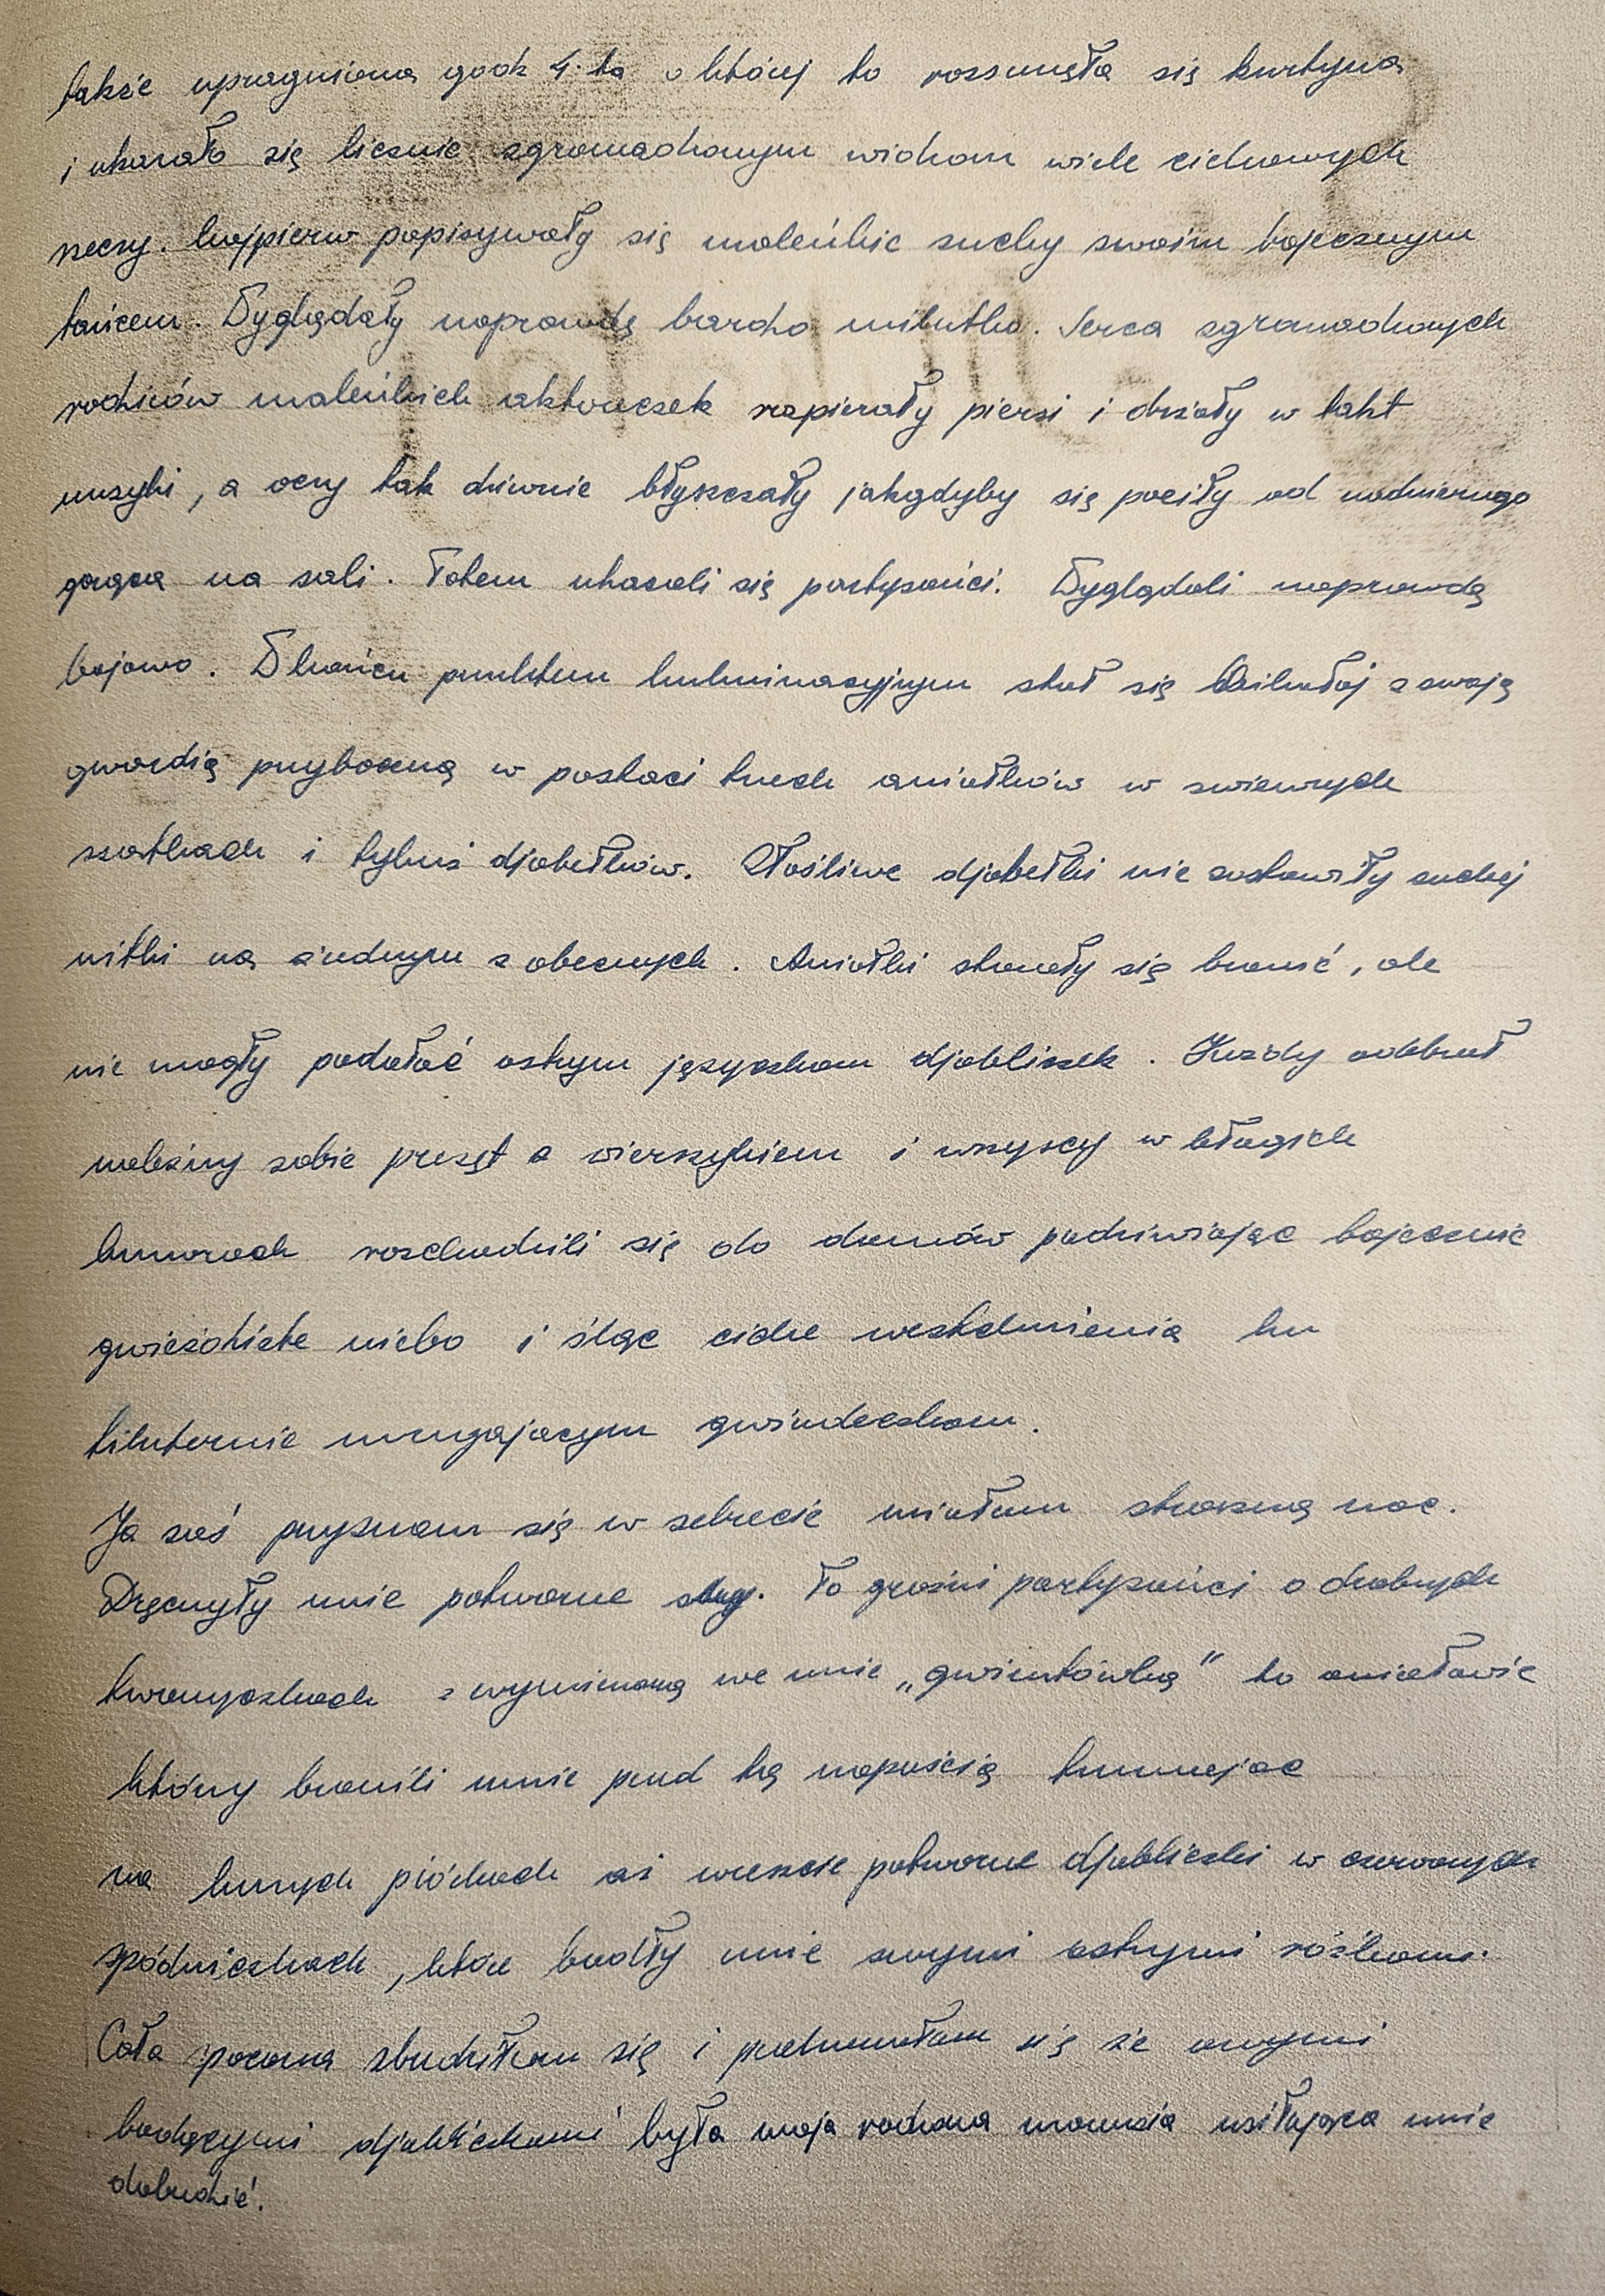 także upragniona godz 4.ta o której to rozsunęła się kurtyna
i ukazało się licznie zgromadzonym widzom wiele ciekawych
rzeczy. Najpierw popisywały się maleńkie zuchy swoim bajecznym
tańcem. Wyglądały naprawdę bardzo milutko. Serca zgromadzonych
rodziców maleńkich aktoreczek rozpierały piersi i drżały w takt
muzyki, a oczy tak dziwnie błyszczały jakgdyby się pociły od nadmiernego
gorąca na sali. Potem ukazali się partyzanci. Wyglądali naprawdę
bojowo. W końcu punktem kulminacyjnym stał się Mikołaj z swoją
gwardią przyboczną w postaci trzech aniołków w zwiewnych
szatkach i tyluż djabełków. Złośliwe djabełki nie zostawiły suchej
nitki na żadnym z obecnych. Aniołki starały się bronić, ale
nie mogły podołać ostrym języczkom djabliczek. Każdy odebrał
należny sobie prezęt z wierszykiem i wszyscy w błogich
humorach rozchodzili się do domów podziwiając bajecznie
gwieździste niebo i śląc ciche westchnienia ku
filuternie mrugającym gwiazdeczkom.
Ja zaś przyznam się w sekrecie miałam straszną noc.
Dręczyły mnie potworne sny. To groźni partyzanci o drobnych
twarzyczkach z wymierzoną we mnie „gwintówką" to aniołowie
którzy bronili mnie przed tą napaścią
na kurzych piórkach aż wreszcie potworne djabliczki w czerwonych
spódniczkach, które bodły mnie swymi ostrymi różkami.
Cała spocona zbudziłam się i przekonałam się że owymi
bodącymi djabliczkami była moja rodzona mamusia usiłująca mnie
dobudzić.